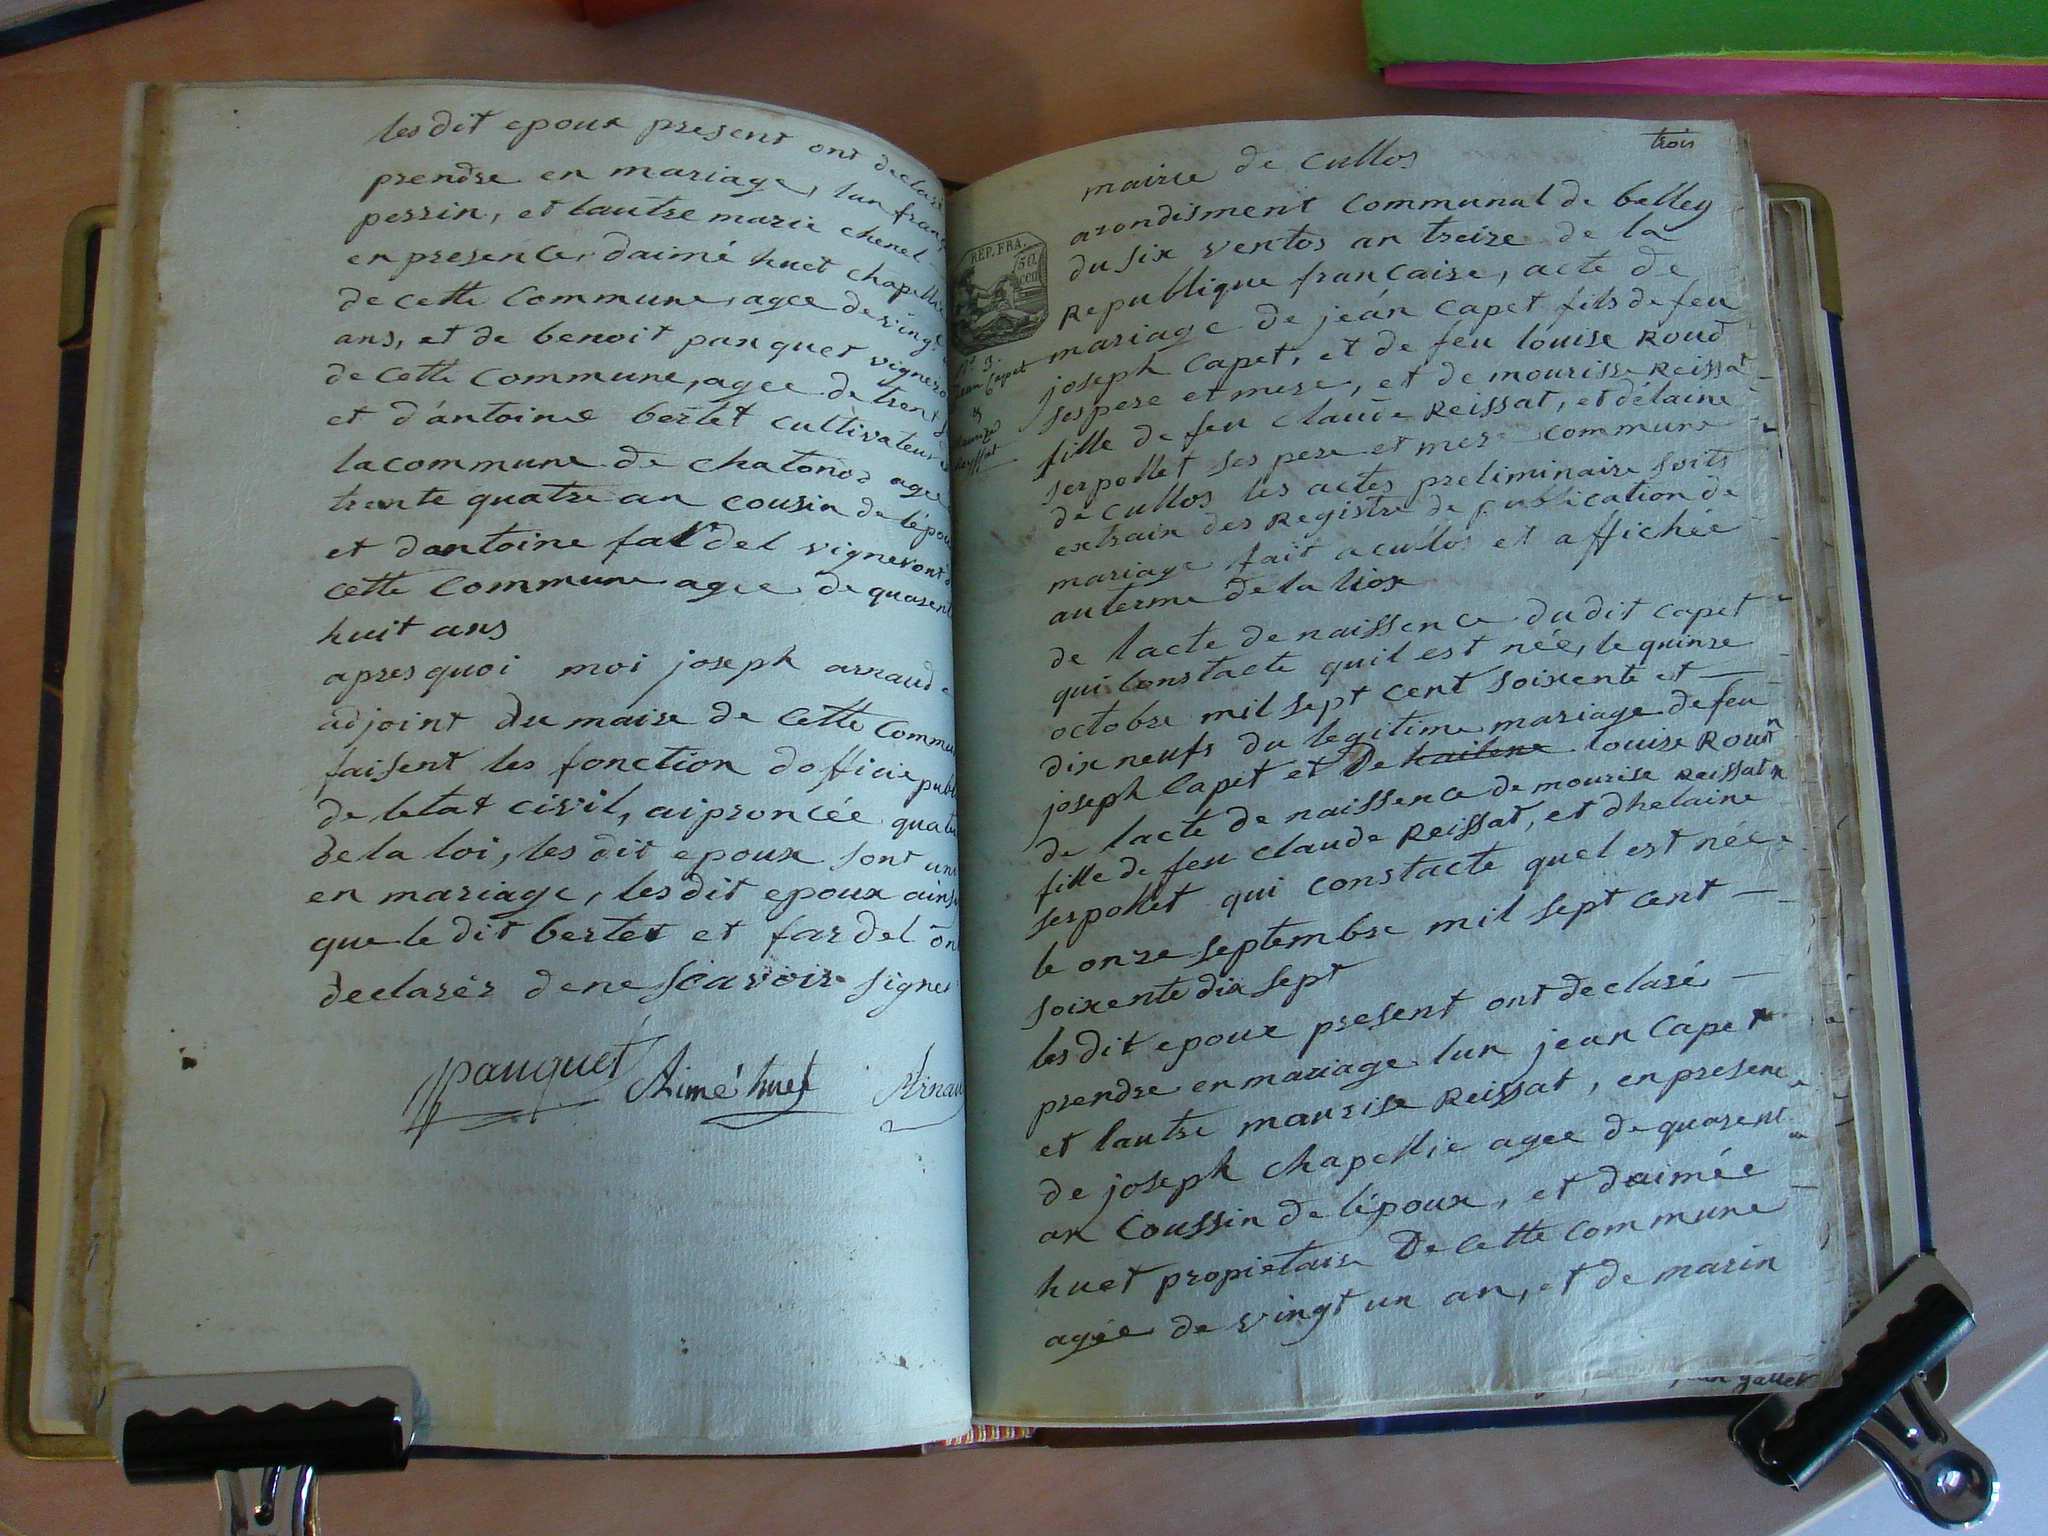 les dit epoux present ont declaré
prendre en mariage, lun
perrin, et lautre marie chenel
en presence, daimé huet
de cette commune, agee de
ans, et de benoit panquet
de cette commune, agee de
et d'antoine bertet cultivateur
la commune de chatonod agee
trente quatre an cousin de
et dantoine fardel vigneront
cette commune agee de
huit ans
apres quoi moi joseph arnaud
adjoint du maire de cette
faisent les fonction dofficie
de letat civil, ai proncée
de la loi, les dit epoux sont
en mariage, les dit epoux
que le dit bertet et fardel on
declarér de ne scavoir signer
panquet Aimé huet
trois
mairie de cullos
arondisment communal de belley
du six ventos an treize de la
Republique francaise, acte de
mariage de jean capet fils de feu
joseph capet, et de feu louise Roud
ses pere et mere, et de mourisse Reissat
fille de feu claude Reissat, et délaine
serpollet ses pere et mere commune
de cullos les actes preliminaire soits
extrain des Registre de publication de
mariage fait a cullos et affichée
au terme de la
REP. FRA.
50
cen
N° 3.
Jean Capet
&
de lacte de naissence du dit capet
qui constacte quil est née, le quinze
octobre mil sept cent soixente et
dix neufs du legitime mariage de feu
joseph capet et De louise
de lacte de naissence de mourise Reissat
fille de feu claude Reissat, et dhelaine
serpollet qui constacte quel est née
le onze septembre mil sept cent
soixente dix sept
les dit epoux present ont declaré
prendre en mariage lun jean capet
et lautre maurise Reissat, en presenc
de joseph chapellie agee de quarent
an coussin de lépoux, et daimée
huet propietaire De cette commune
agée de vingt un an, et de marin